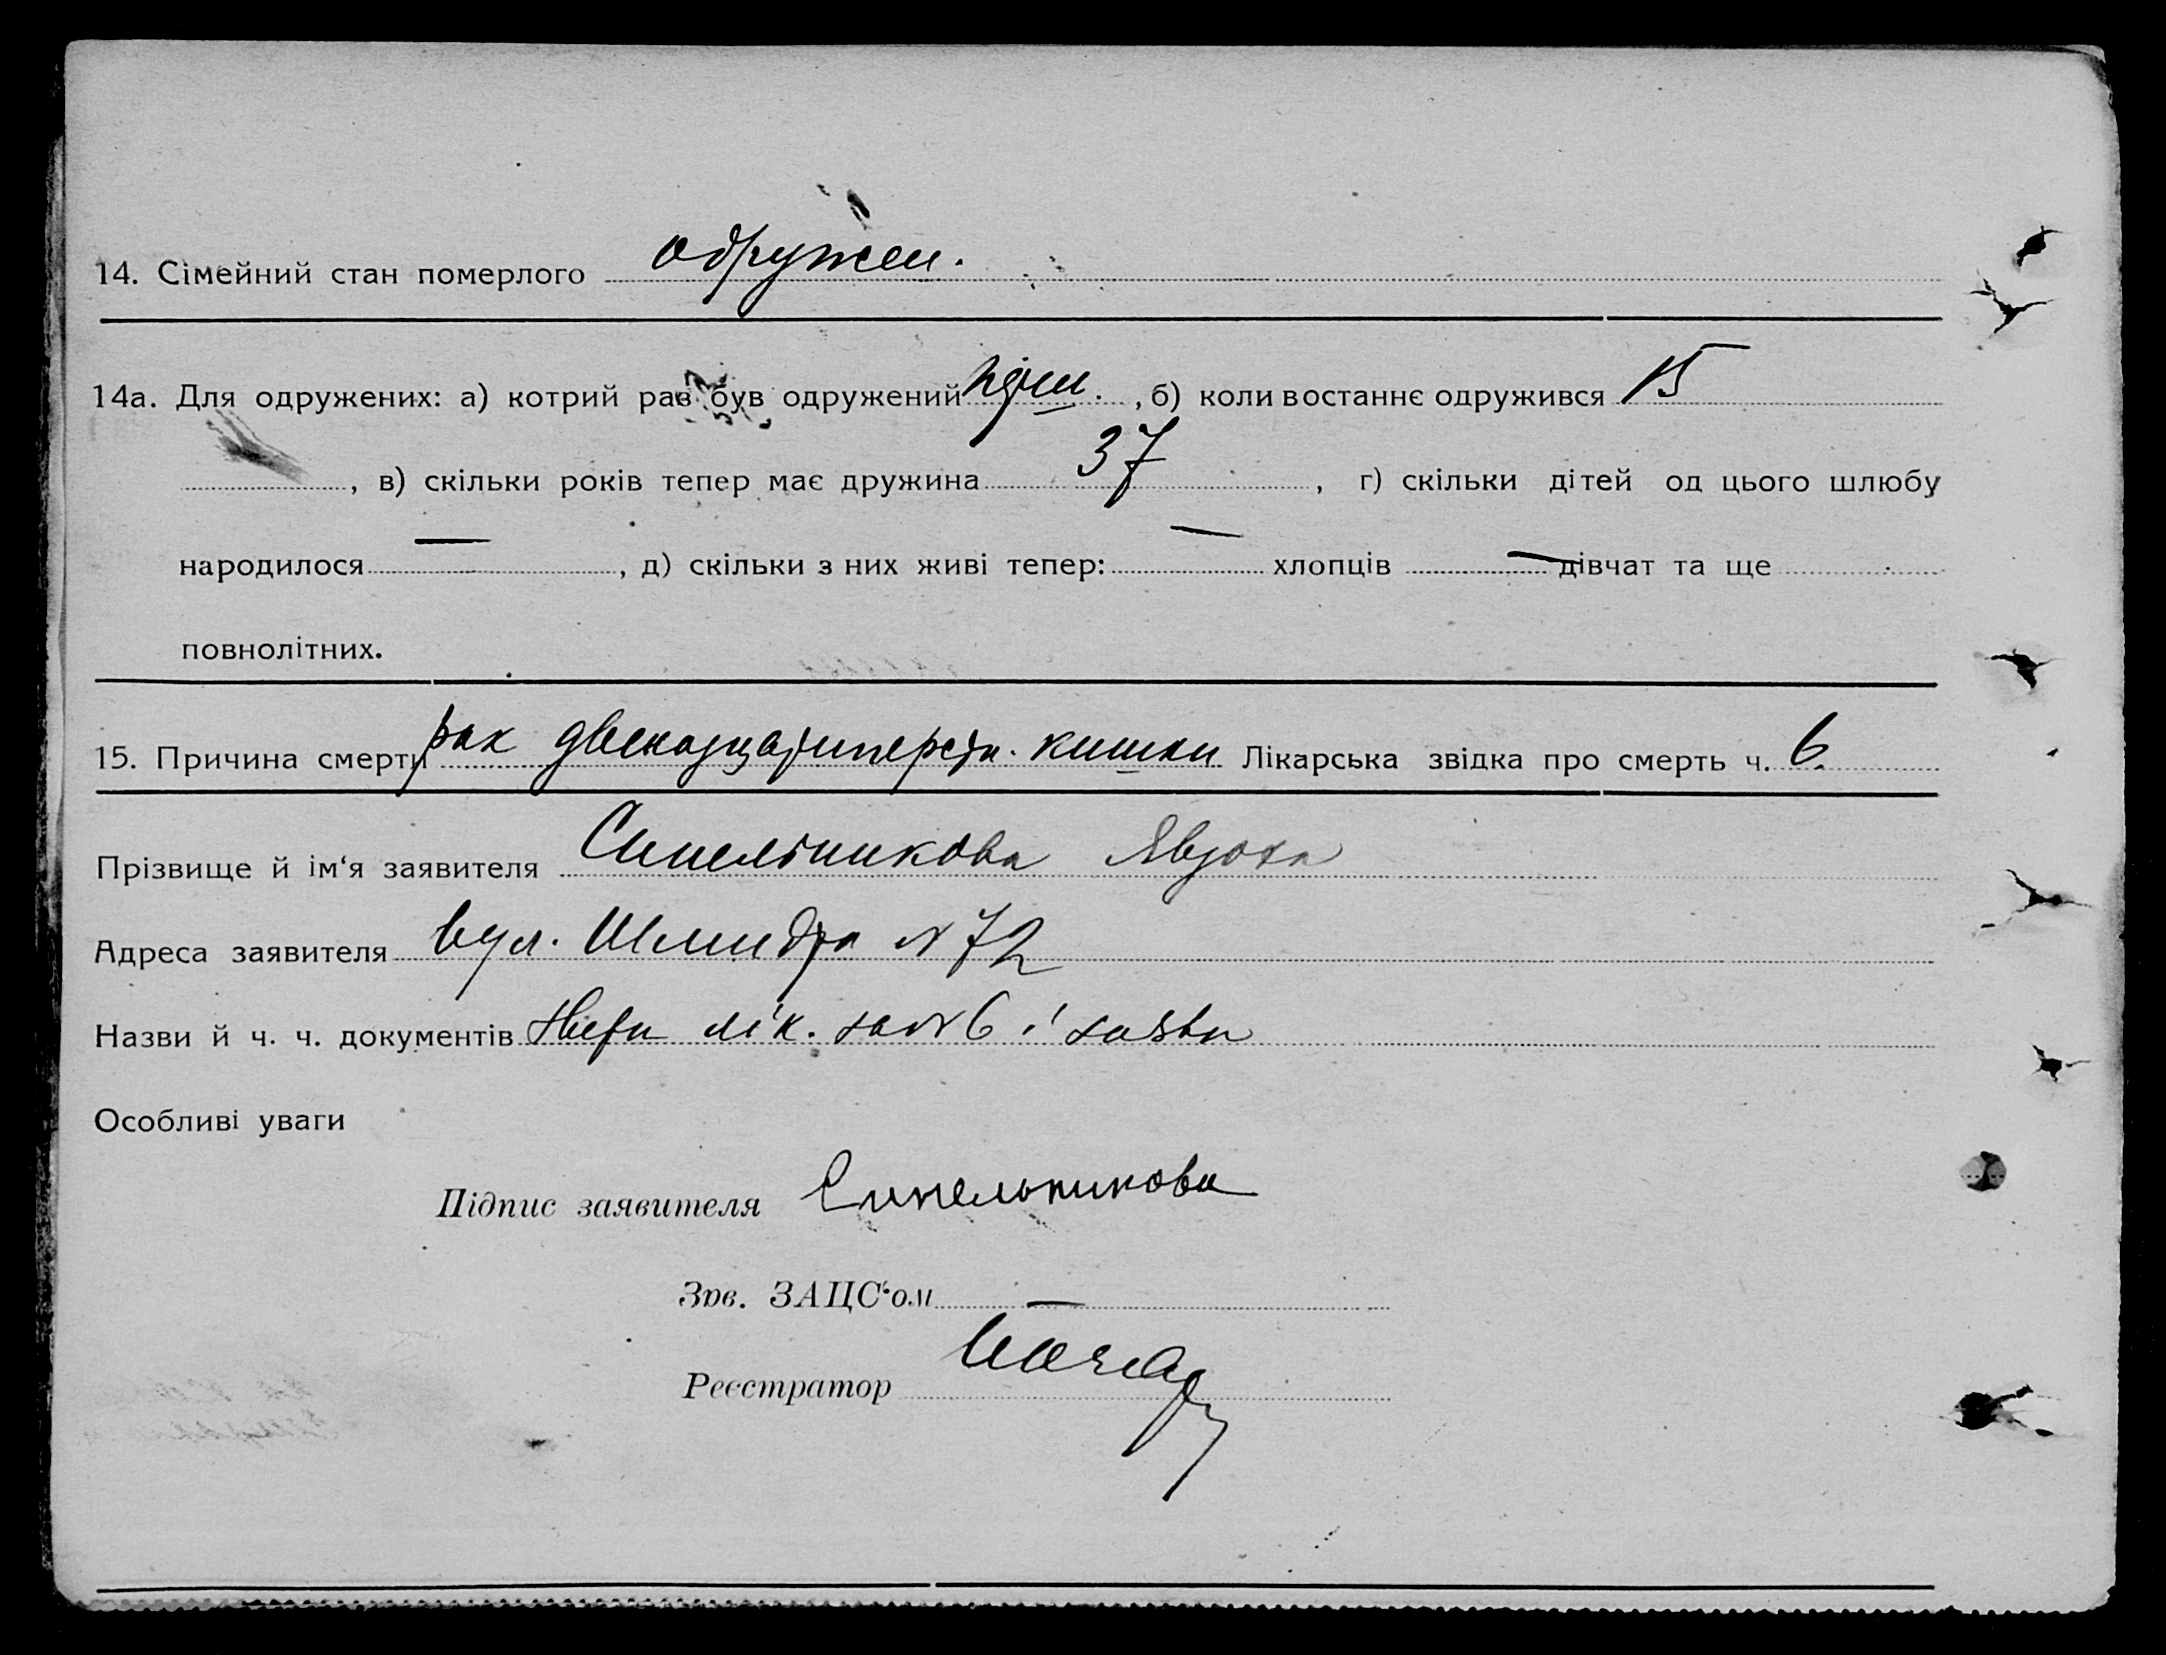 14. Сімейний стан померлого одружен.
14а. Для одружених: а) котрий раз був одружений перш. , б) коли востаннє одружився 15
, в) скільки років тепер має дружина 37 , г) скільки дітей од цього шлюбу
народилося — , д) скільки з них живі тепер: — хлопців — дівчат та ще
повнолітних.
15. Причина смерти рак двенадцатиперстн. кишки Лікарська звідка про смерть ч. 6.
Прізвище й ім‘я заявителя Синельникова Явдоха
Адреса заявителя вул. Шмидта N 72
Назви й ч. ч. документів лік. за N 6 і заява
Особливі уваги
Підпис заявителя Синельникова
Зав. ЗАЦС‘ом —
Реєстратор